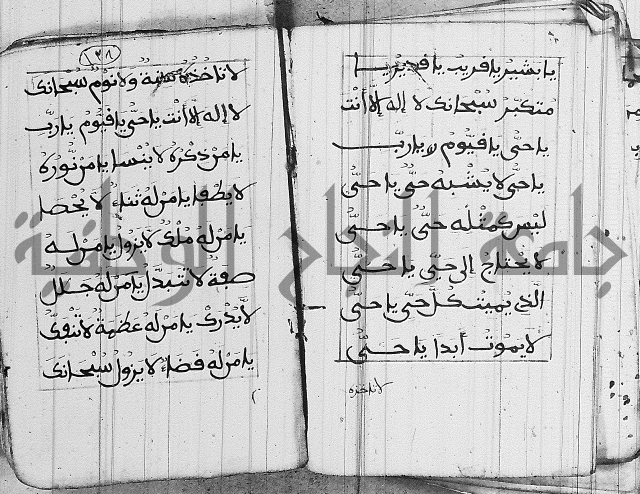 يا بشير يا قريب يا قدير يا
متكبر سبحانك لا إله إلا أنت
يا حي يا قيوم يا رب
يا حي لا يشبه حي يا حي
ليس كمثله حي يا حي
لا يحتاج إلى حي يا حي
الذي يميت كل حي يا حي
لا يموت أبدا يا حي
لا تاخذه
١٣٨
لا تاخذه سنة ولا نوم سبحانك
لا إله إلا أنت يا حي يا قيوم يا رب
يا من ذكره لا ينسا يا من نوره
لا يطفا يا من له ثناء لا يحصا
يا من له ملك لا يزول يا من له
صفة لا تتبدل يا من له جلال
لا يدرك يا من له عظمة لا
يا من له لا يزول سبحانك
جامعة النجاح الوطنية